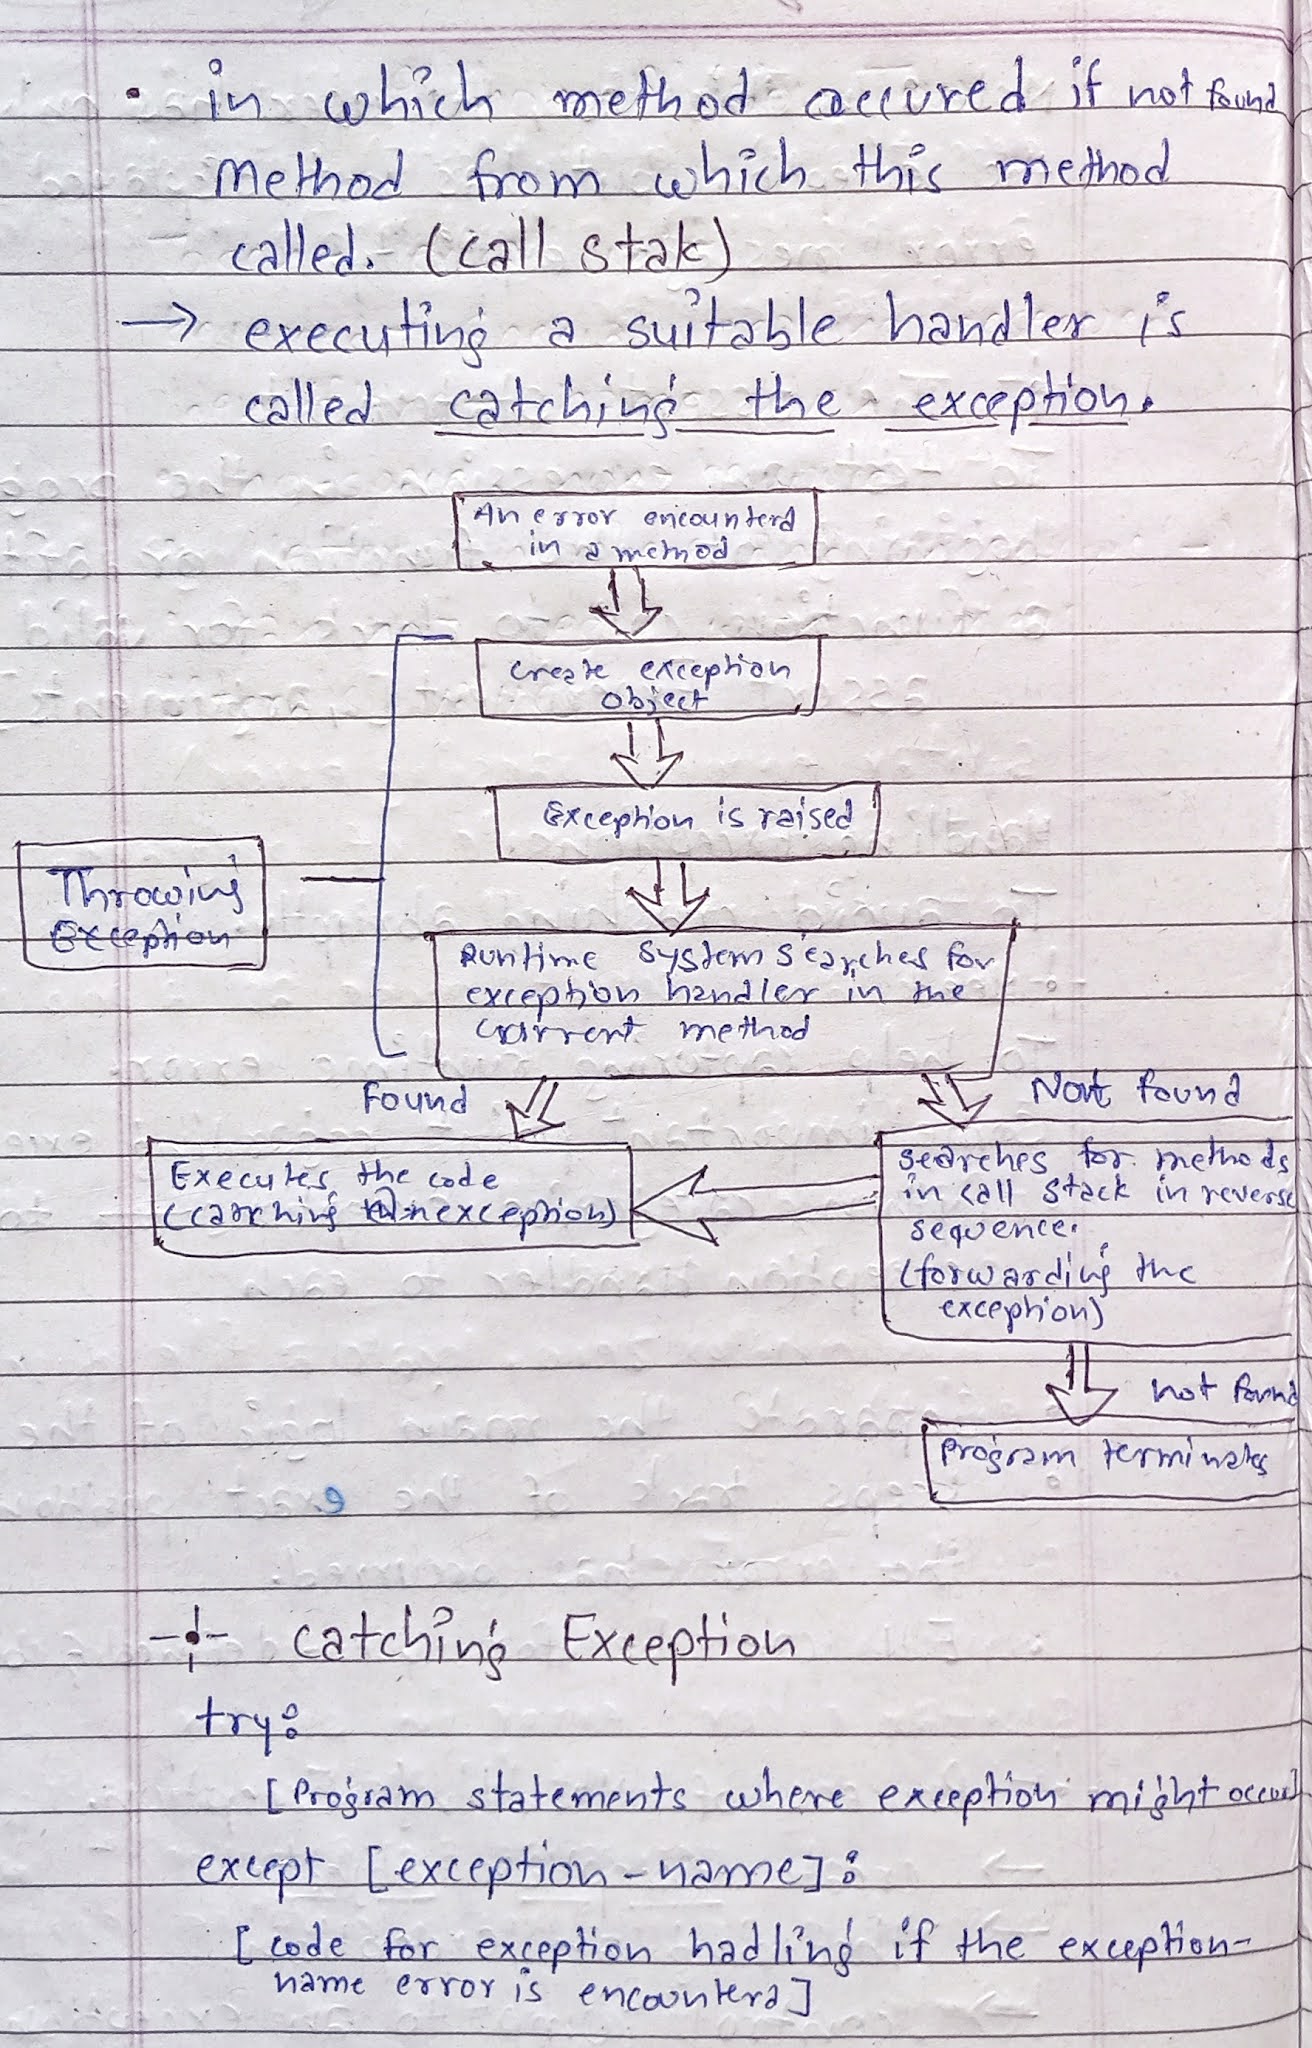 • in which method occured if not found
method from which this method
called. (call stak)
→ executing a suitable handler is
called catching the exception.
An error encounterd
in a method
create exception
object
Exception is raised
Throwing
Exception
Runtime system searches for
exception handler in the
current method
Found
Not found
Executes the code
(catching exception)
searches for methods
in call stack in reverse
sequence.
(forwarding the
exception)
not found
Program terminates
catching Exception
try:
[Program statements where exception might occur]
except [exception-name]:
[code for exception hadling if the exception-
name error is encounterd]